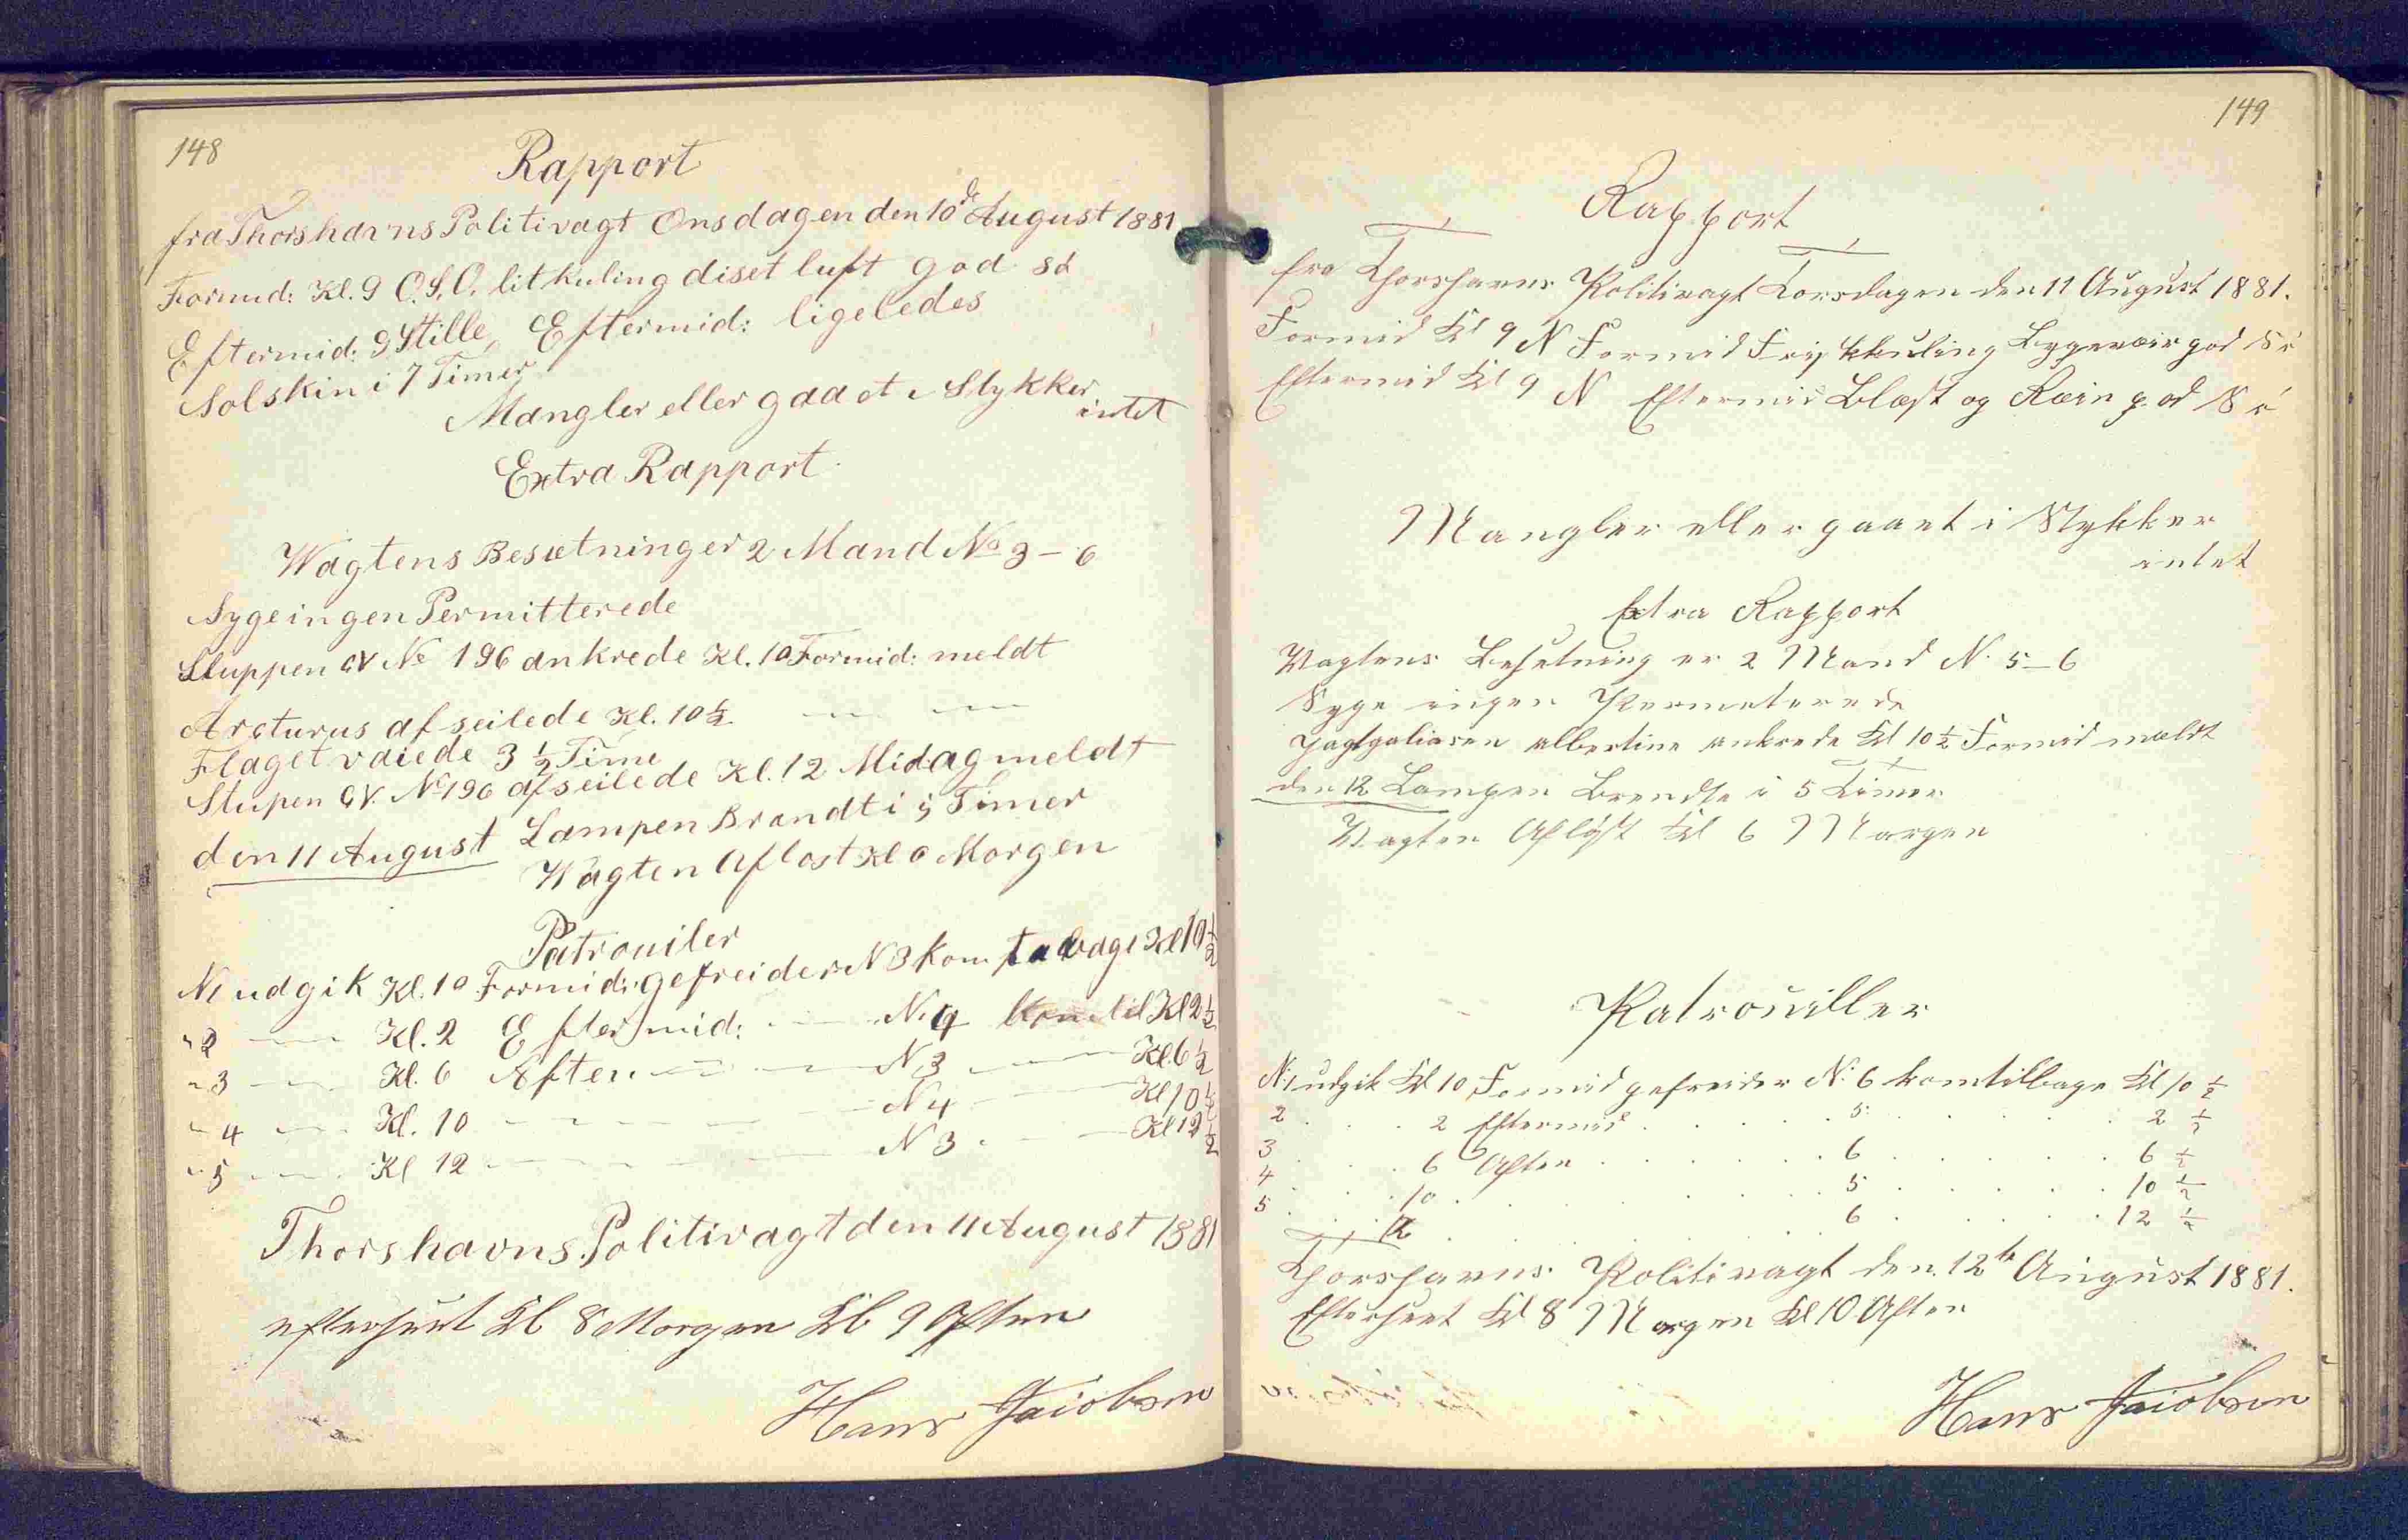 148
Rapport
fra Thorshavns Politivagt Onsdagen den 10de August 1881
Formid: Kl. 9 O.S.O. lit kuling diset luft god sö
Eftermid: 9 Stille, Eftermid: ligeledes
Solskin i 7 Timer
Mangler eller gaaet i Stykker
intet
Extra Rapport
Wagtens Besætning er 2 Mand No 3 - 6
Syge ingen Permitterede
Sluppen GV No 196 ankrede Kl. 10 Formid: meldt
Arcturus afseilede Kl. 10 1/2 — —
Flaget vaiede 3 1/2 Time
Slupen GV. No 196 afseilede Kl. 12 Midag meldt
den 11 August Lampen Brandt i 5 Timer
Wagten Aflost Kl 6 Morgen
Patrouiler
N 1 udgik Kl. 10 Formid: gefreider N 3 kom Kl 10 1/2
" 2 — Kl. 2 Eftermid: — N. 4 kom til Kl 2 1/2
" 3 — Kl. 6 Aften — — N. 3 — Kl. 6 1/2
" 4 — Kl. 10 — — — N 4 — Kl 10 1/2
" 5 — Kl 12 — — — N 3 — Kl 12 1/2
Thorshavns Politivagt den 11 August 1881
efterseet Kl 8 Morgen Kl 9 Aften
Hans Jacobsen
149
Rapport
fra Thorshavns Politivagt Torsdagen den 11 August 1881.
Formid Kl 9 N Formid Frisk kuling Bygeveir god Sö
Eftermid Kl 9 N Eftermid Blæst og Rein god Sö
Mangler eller gaaet i Stykker
intet
Extra Rapport
Vagtens Besetning er 2 Mand N. 5 - 6
Syge ingen Permeterede
Jagtgaliasen albertine ankrede Kl 10 1/2 Formid meldt
den 12 Lampen Brendte i 5 Timer
Vagten Afløst Kl 6 Morgen
Patrouiller
N. 1 udgik Kl 10 Formid gefreider N. 6 kom tilbage Kl 10 1/2
2 . . . 2 Eftermid . . . 5 . . . 2 1/2
3 . . . 6 Aften . . . 6 . . . 6 1/2
4 . . . 10 . . . 5 . . . 10 1/2
5 . . . 12 . . . 6 . . . 12 1/2
Thorshavns Politivagt den 12te August 1881.
Efterseet Kl 8 Morgen Kl 10 Aften
Hans Jacobsen